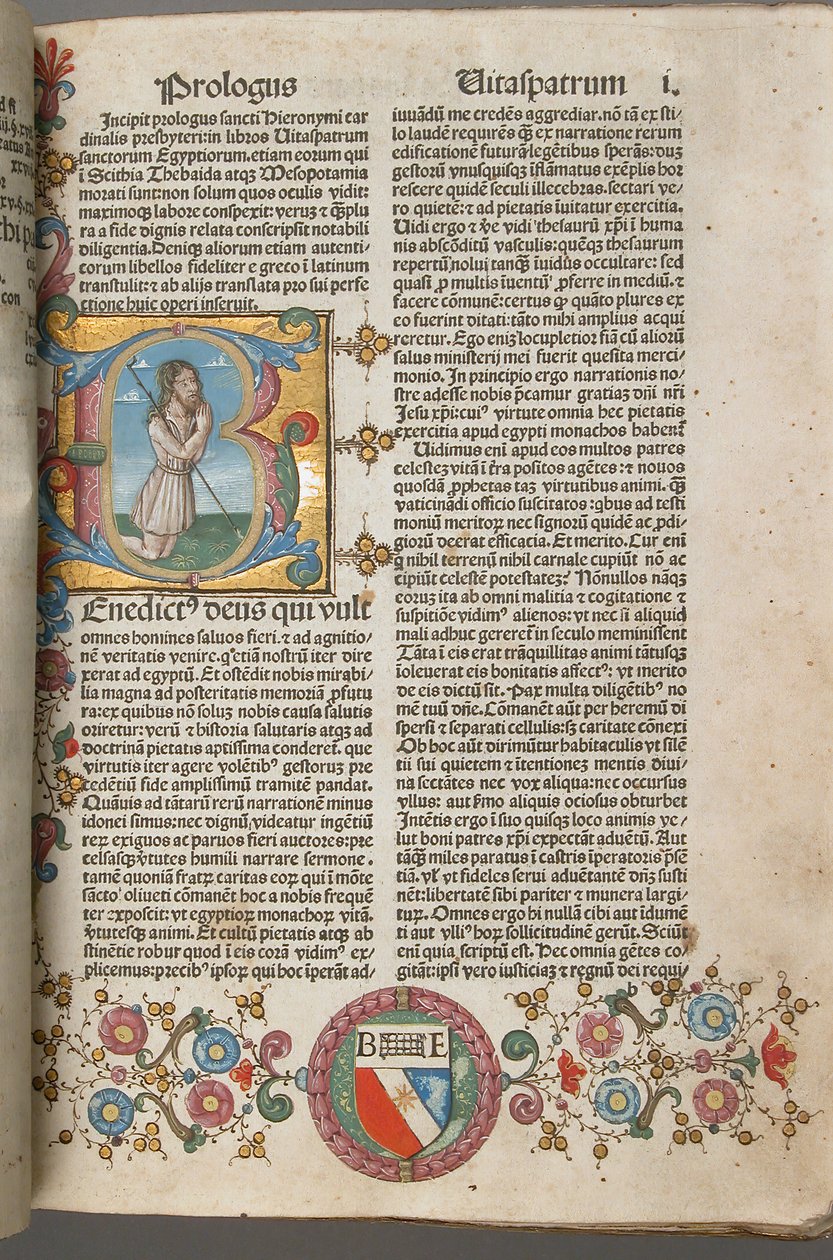 Prologus
Incipit prologus sancti Hieronymi car
dinalis presbyteri:in libros Uitaspatrum
sanctorum Egyptiorum.etiam eorum qui
ī Scithia Thebaida atqꝫ Mesopotamia
morati sunt:non solum quos oculis vidit:
maximoqꝫ labore conspexit:veruꝫ ⁊ q̄ꝫplu
ra a fide dignis relata conscripsit notabili
diligentia.Deniqꝫ aliorum etiam autenti⸗
corum libellos fideliter e greco ī latinum
transtulit:⁊ ab alijs translata pro sui perfe
ctione huic operi inseruit.
Enedictꝰ deus qui vult
omnes homines saluos fieri.⁊ ad agnitio⸗
nē veritatis venire.qͥ etiā nostrū iter dire
xerat ad egyptū. Et ostēdit nobis mirabi⸗
lia magna ad posteritatis memoriā ꝓfutu
ra:ex quibus nō soluꝫ nobis causa salutis
oriretur:verū ⁊ historia salutaris atqꝫ ad
doctrinā pietatis aptissima conderet̄. que
virtutis iter agere volētibꝰ gestoruꝫ pre
cedētiū fide amplissimū tramitē pandat.
Quāuis ad tātarū rerū narrationē minus
idonei simus:nec dignū videatur ingētiū
reꝝ exiguos ac paruos fieri auctores:pre
celsasqꝫ v̄tutes humili narrare sermone.
tamē quoniā fratꝝ caritas eoꝝ qui ī mōte
sācto oliueti cōmanēt hoc a nobis frequē
ter exposcit: vt egyptioꝝ monachoꝝ vitā.
v̄tutesqꝫ animi. Et cultū pietatis atqꝫ ab
stinētie robur quod ī eis corā vidimꝰ ex⸗
plicemus:precibꝰ ipsoꝝ qui hoc īperāt ad⸗
Uitaspatrum i.
iuuādū me credēs aggrediar.nō tā ex sti⸗
lo laudē requirēs q̄ꝫ ex narratione rerum
edificationē futurā legētibus sperās:duꝫ
gestorū vnusquisqꝫ īflāmatus exēplis hor
rescere quidē seculi illecebras.sectari ve⸗
ro quietē:⁊ ad pietatis īuitatur exercitia.
Uidi ergo ⁊ v̄e vidi thesaurū xp̄i ī huma
nis abscōditū vasculis:quēqꝫ thesaurum
repertū nolui tanqꝫ īuidꝰ occultare: sed
quasi ꝓ multis īuentū ꝓferre in mediū.⁊
facere cōmunē:certus ꝙ quāto plures ex
eo fuerint ditati:tāto mihi amplius acqui
reretur. Ego eniꝫ locupletior fiā cū alioꝝ
salus ministerij mei fuerit quesita merci⸗
monio. In principio ergo narrationis no⸗
stre adesse nobis p̄camur gratiaꝫ dn̄i nr̄i
Jesu xp̄i:cuiꝰ virtute omnia hec pietatis
exercitia apud egypti monachos habent̄
Uidimus eni apud eos multos patres
celesteꝫ vitā ī t̄ra positos agētes:⁊ nouos
quosdā ꝓphetas taꝫ virtutibus animi. q̄ꝫ
vaticinādi officio suscitatos:qͥbus ad testi
moniū meritoꝝ nec signorū quidē ac ꝓdi⸗
giorū deerat efficacia. Et merito. Cur eni
qͥ nihil terrenū nihil carnale cupiūt nō ac
cipiūt celestē potestateꝫ? Nōnullos nāqꝫ
eoruꝫ ita ab omni malitia ⁊ cogitatione ⁊
suspitiōe vidimꝰ alienos: vt nec si aliquid
mali adhuc gereret̄ in seculo meminissent
Tāta ī eis erat trāquillitas animi tātusqꝫ
īoleuerat eis bonitatis affectꝰ: vt merito
de eis dictū sit. Pax multa diligētibꝰ no
mē tuū dn̄e. Cōmanēt aūt per heremū di
spersi ⁊ separati cellulis:sꝫ caritate cōnexi
Ob hoc aūt dirimūtur habitaculis vt silē
tii sui quietem ⁊ ītentionez mentis diui⸗
na sectātes nec vox aliqua:nec occursus
vllus: aut ẜmo aliquis ociosus obturbet
Intētis ergo ī suo quisqꝫ loco animis ve⸗
lut boni patres xp̄i expectāt aduētū. Aut
tāqꝫ miles paratus ī castris īperatoris p̄sē
tiā. vl̓ vt fideles serui aduētantē dn̄ꝫ susti
nēt:libertatē sibi pariter ⁊ munera largi⸗
tuꝝ. Omnes ergo hi nullā cibi aut īdumē
ti aut vlliꝰ hoꝝ sollicitudinē gerūt. Sciūt
eni quia scriptū est. Hec omnia gētes co⸗
gitāt:ipsi vero iusticiaꝫ ⁊ regnū dei requi⸗
b
B E